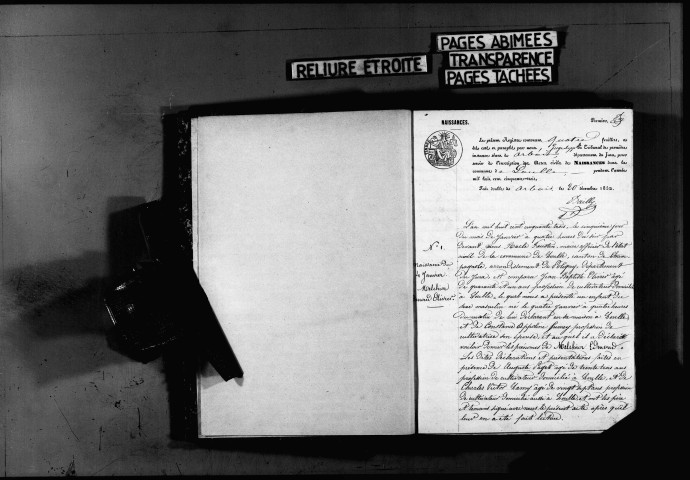 RELIURE ETROITE
PAGES ABIMEES
TRANSPARENCE
PAGES TACHEES
NAISSANCES.
Premier,
Le présent Registre contenant quatre feuillets, a
été coté et paraphé par nous, Tribunal de première
instance séant à Arbois département du Jura, pour
servir à l'inscription des Actes civils de NAISSANCES dans la
commune d pendant l'année
mil huit cent cinquante-trois.
Fait, double à Arbois le 20 décembre 1852.
N.° 1
Naissance de
Janvier
Melchior
L'an mil huit cent cinquante trois, le cinquième jour
du mois de Janvier à quatre heures du soir par
devant nous maire officier de l'état
civil de la commune de canton de Cham
pagnole, arrondissement de Poligny, département
du Jura, est comparu Jean Baptiste âgé
de quarante un ans profession de cultivateur domicilié
à lequel nous a présenté un enfant du
sexe masculin né le quatre Janvier à heures
du matin de lui déclarant en sa maison à
et de profession de
cultivatrice son épouse, et auquel il a déclaré
vouloir donner les prénoms de Melchior
Les dites déclarations et présentations faites en
présence de Auguste âgé de trente trois ans
profession de cultivateur domicilié à et de
Charles Victor âgé de vingt sept ans profession
de cultivateur domicilié aussi à et ont les père
et témoins signé avec nous le présent acte après qu'il
leur en a été fait lecture.